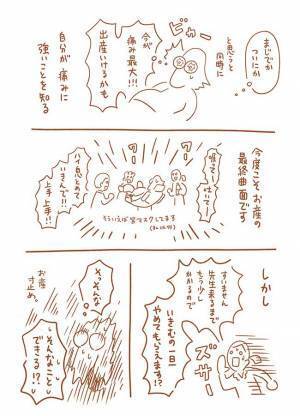 まじでか
ついにか
と思うと
同時に
ビュー
今が
痛み最大!!!
出産いけるかも
自分が痛みに
強いことを知る
今度こそお産の
最終曲面です
吸ってー
吐いてー
ハイ息とめて
いきんで!!
上手上手!!
そういえば皆マスクしてます
しかし
すいません
先生来るまで
もう少し
かかるので
いきむの一旦
やめてもらえます!?
ズサー
そっそんな
そんなこと
できる!?
お産
寸止め。